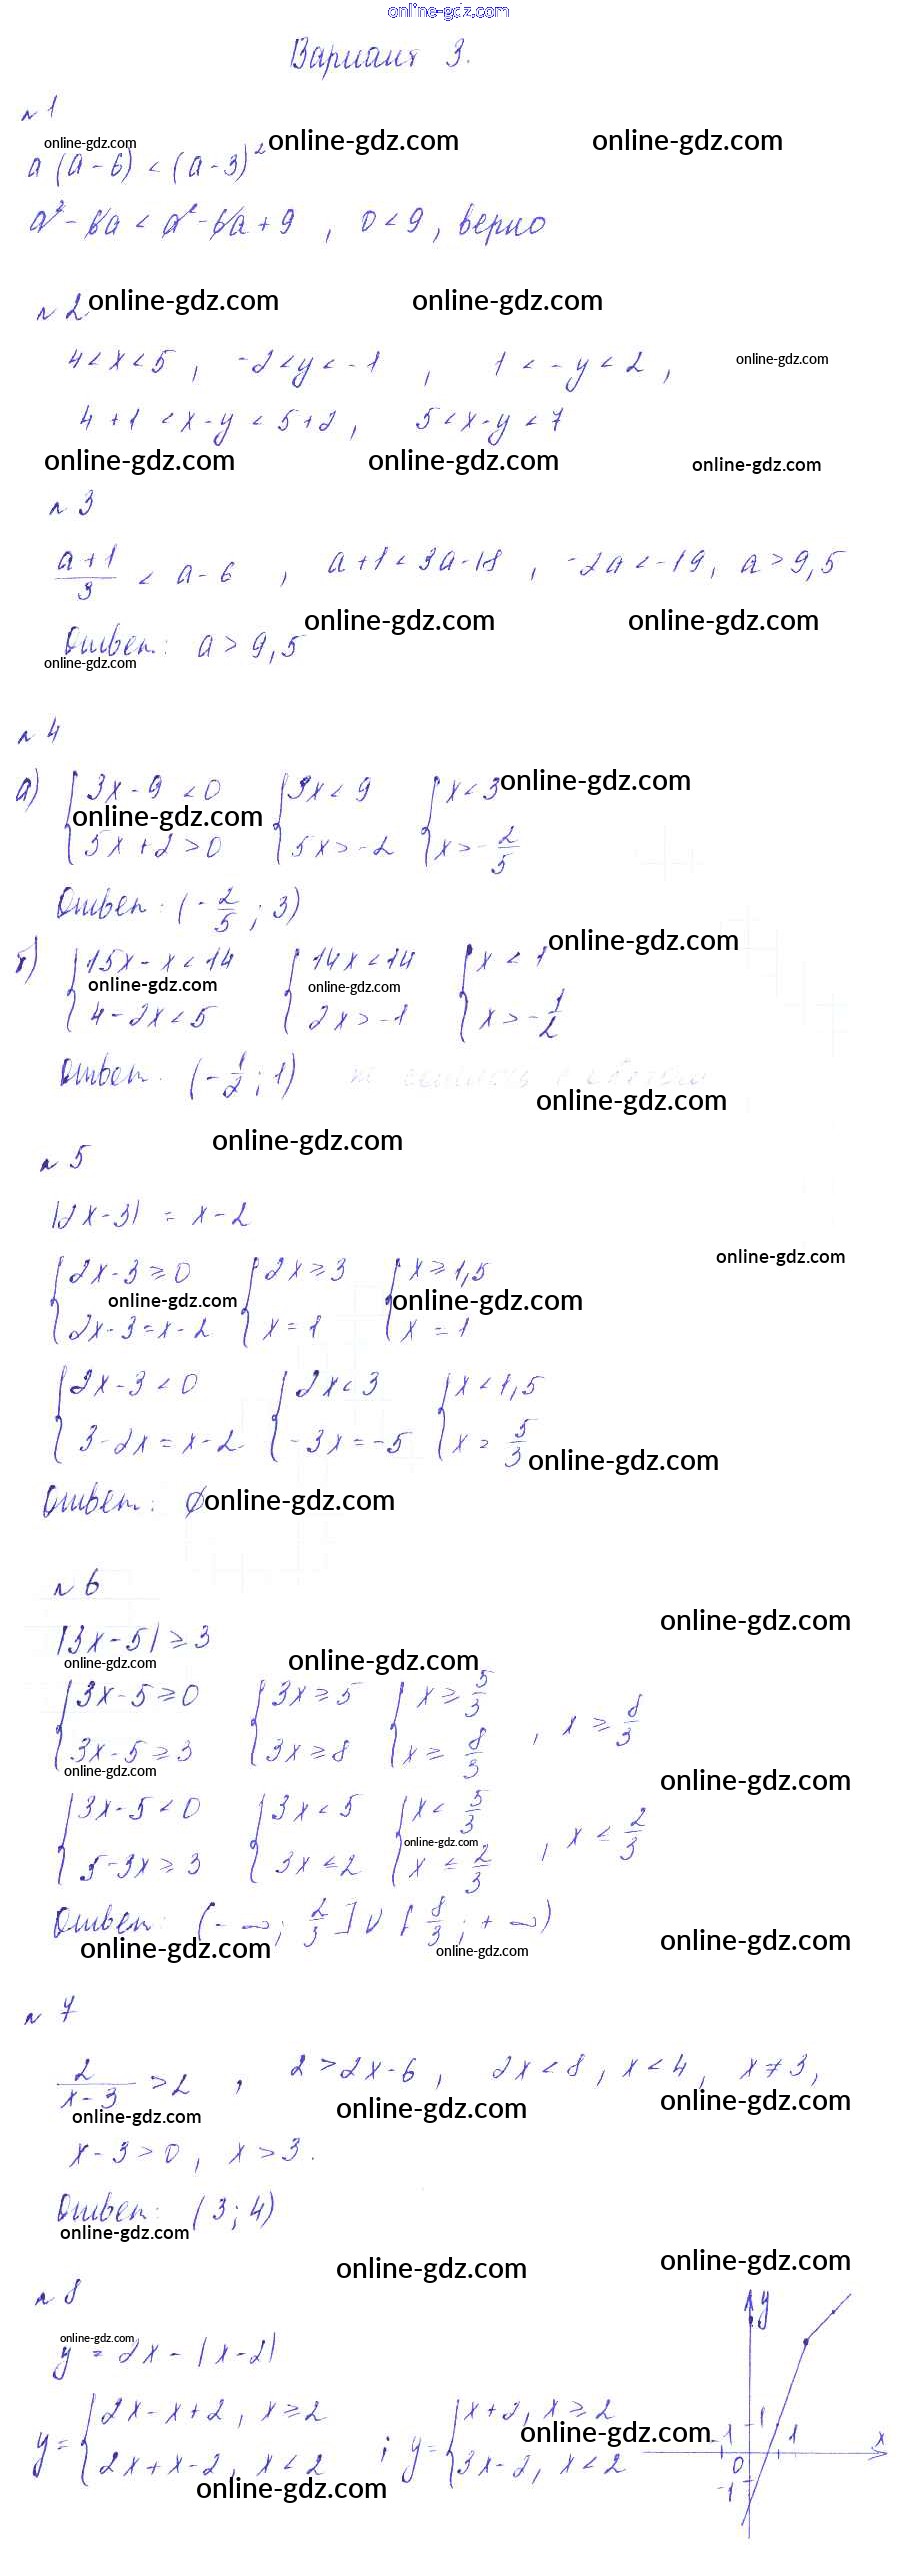 online-gdz.com
Вариант 3.
№1
online-gdz.com online-gdz.com online-gdz.com
a(a-6) < (a-3)²
a² - 6a < a² - 6a + 9, 0 < 9, верно
№2 online-gdz.com online-gdz.com
4 < x < 5, -2 < y < -1, 1 < -y < 2, online-gdz.com
4+1 < x-y < 5+2, 5 < x-y < 7
online-gdz.com online-gdz.com online-gdz.com
№3
(a+1)/3 < a-6, a+1 < 3a-18, -2a < -19, a > 9,5
online-gdz.com online-gdz.com
Ответ: a > 9,5
online-gdz.com
№4
а) { 3x-9 < 0 { 3x < 9 { x < 3 online-gdz.com
online-gdz.com
5x+2 > 0 5x > -2 x > -2/5
Ответ: (-2/5; 3)
online-gdz.com
б) { 15x-x < 14 { 14x < 14 { x < 1
online-gdz.com online-gdz.com
4-2x < 5 2x > -1 x > -1/2
Ответ: (-1/2; 1)
online-gdz.com
online-gdz.com
№5
|2x-3| = x-2
online-gdz.com
{ 2x-3 ≥ 0 { 2x ≥ 3 { x ≥ 1,5
online-gdz.com online-gdz.com
2x-3 = x-2 x = 1 x = 1
{ 2x-3 < 0 { 2x < 3 { x < 1,5
3-2x = x-2 -3x = -5 x = 5/3
online-gdz.com
Ответ: ∅ online-gdz.com
№6
online-gdz.com
|3x-5| ≥ 3
online-gdz.com online-gdz.com
{ 3x-5 ≥ 0 { 3x ≥ 5 { x ≥ 5/3
, x ≥ 8/3
3x-5 ≥ 3 3x ≥ 8 x ≥ 8/3
online-gdz.com online-gdz.com
{ 3x-5 < 0 { 3x < 5 { x < 5/3
online-gdz.com , x ≤ 2/3
5-3x ≥ 3 3x ≤ 2 x ≤ 2/3
Ответ: (-∞; 2/3] ∪ [8/3; +∞)
online-gdz.com online-gdz.com online-gdz.com
№7
2/(x-3) > 2, 2 > 2x-6, 2x < 8, x < 4, x ≠ 3,
online-gdz.com online-gdz.com online-gdz.com
x-3 > 0, x > 3.
Ответ: (3; 4)
online-gdz.com
online-gdz.com online-gdz.com
№8
y
online-gdz.com
y = 2x - |x-2|
y = { 2x-x+2, x ≥ 2 ; y = { x+2, x ≥ 2
online-gdz.com
2x+x-2, x < 2 3x-2, x < 2
online-gdz.com
-1 1 1 x
0
-1